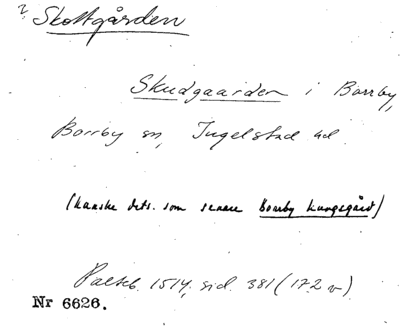 ? Skottgården
Skudgaarden i Borrby,
Borrby sn, Ingelstad hd.
(kanske dets. som senare Borrby kungsgård)
Palteb. 1514, sid. 381 (172 v)
Nr 6626.